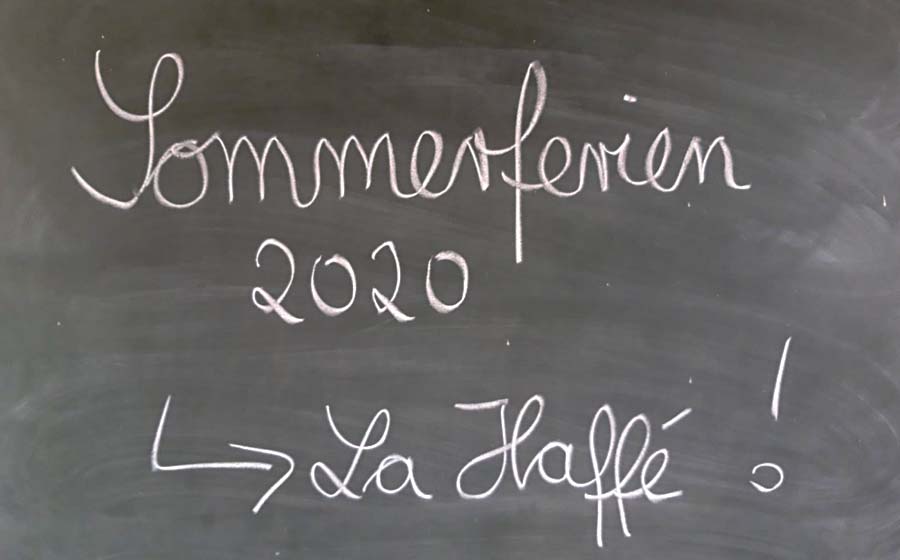 Sommerferien
2020
↳ La Haffé !